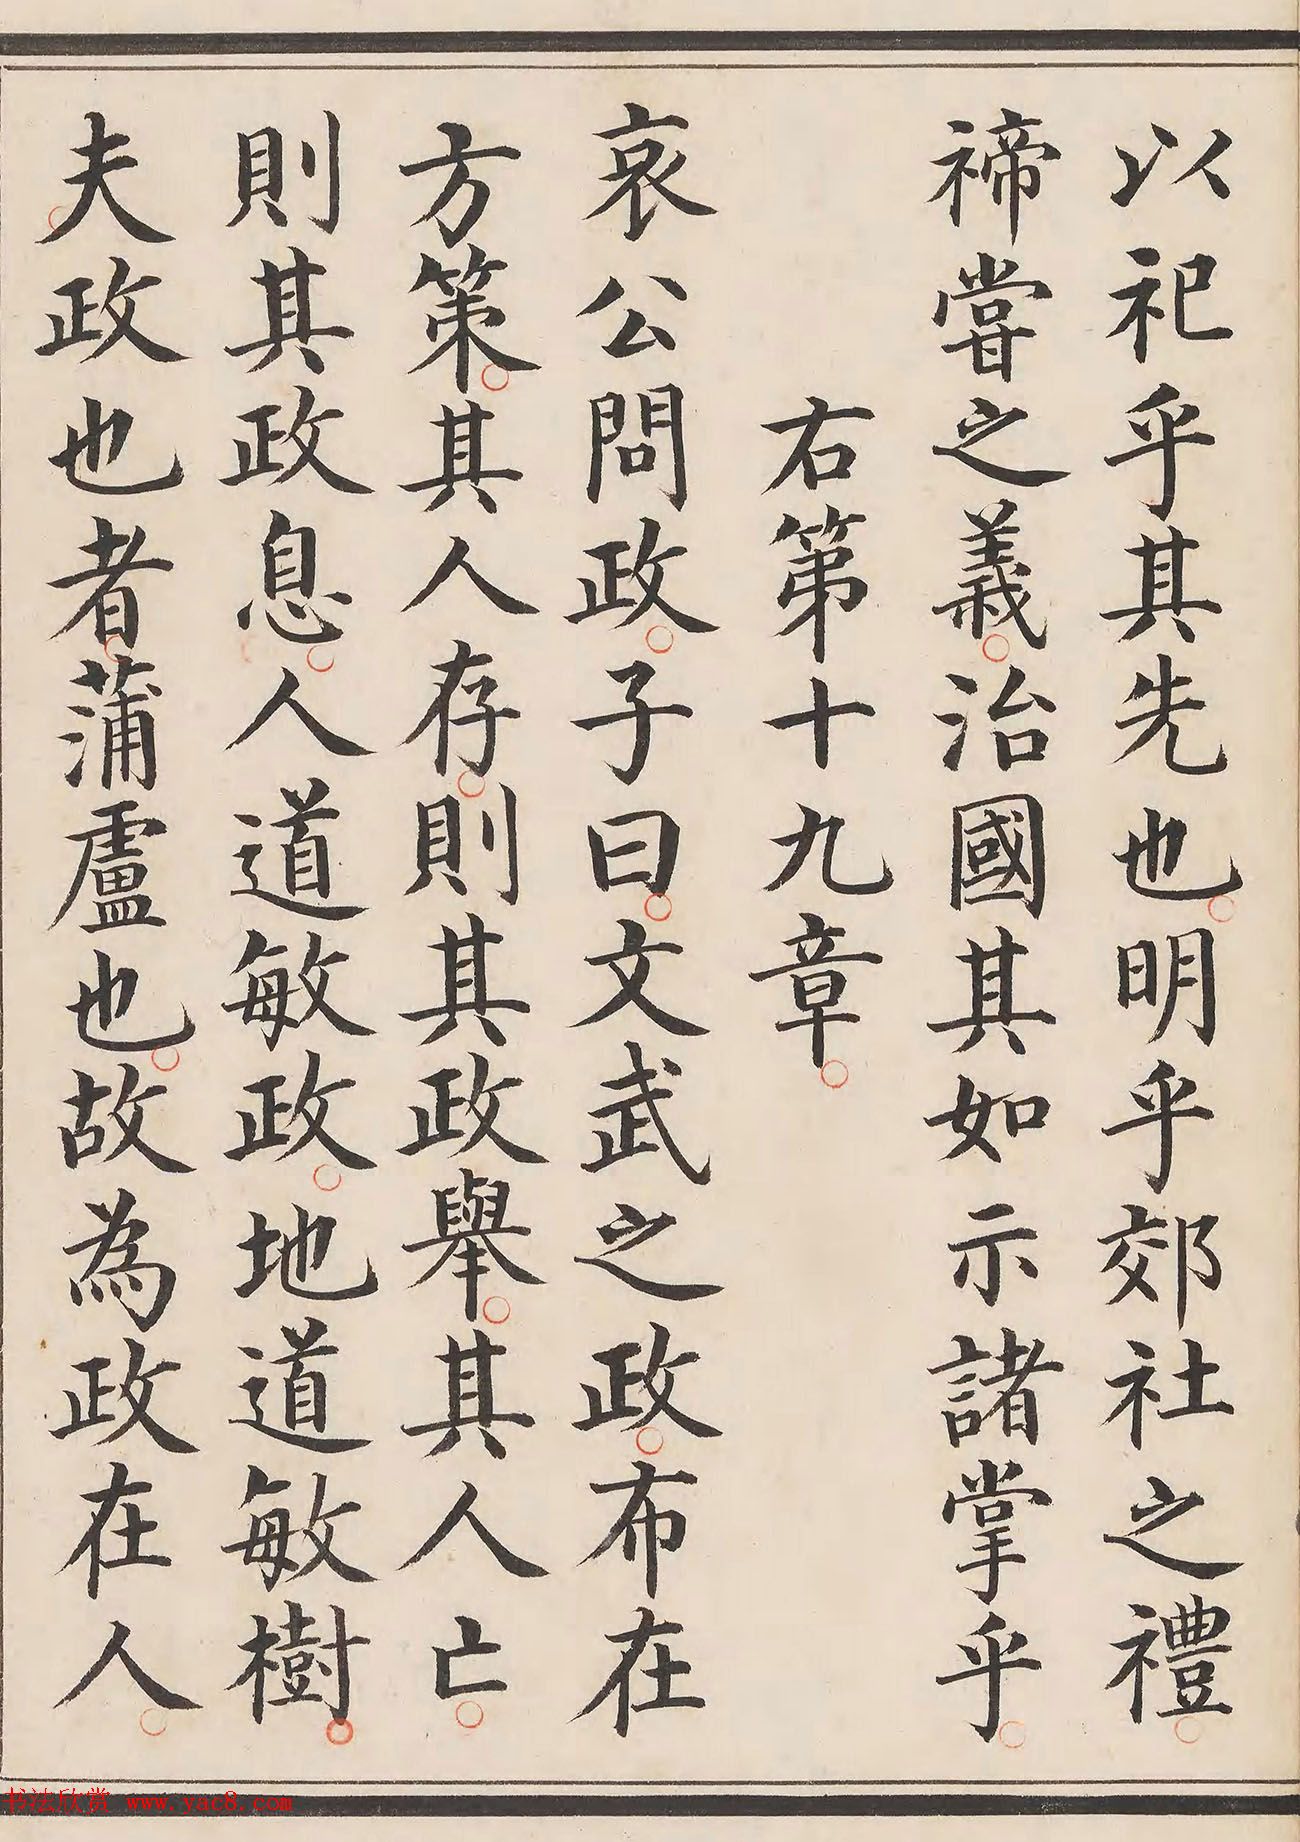 以祀乎其先也。明乎郊社之禮。
禘嘗之義。治國其如示諸掌乎。
右第十九章。
哀公問政。子曰。文武之政。布在
方策。其人存。則其政舉。其人亡。
則其政息。人道敏政。地道敏樹。
夫政也者。蒲盧也。故為政在人。
书法欣赏 www.yac8.com